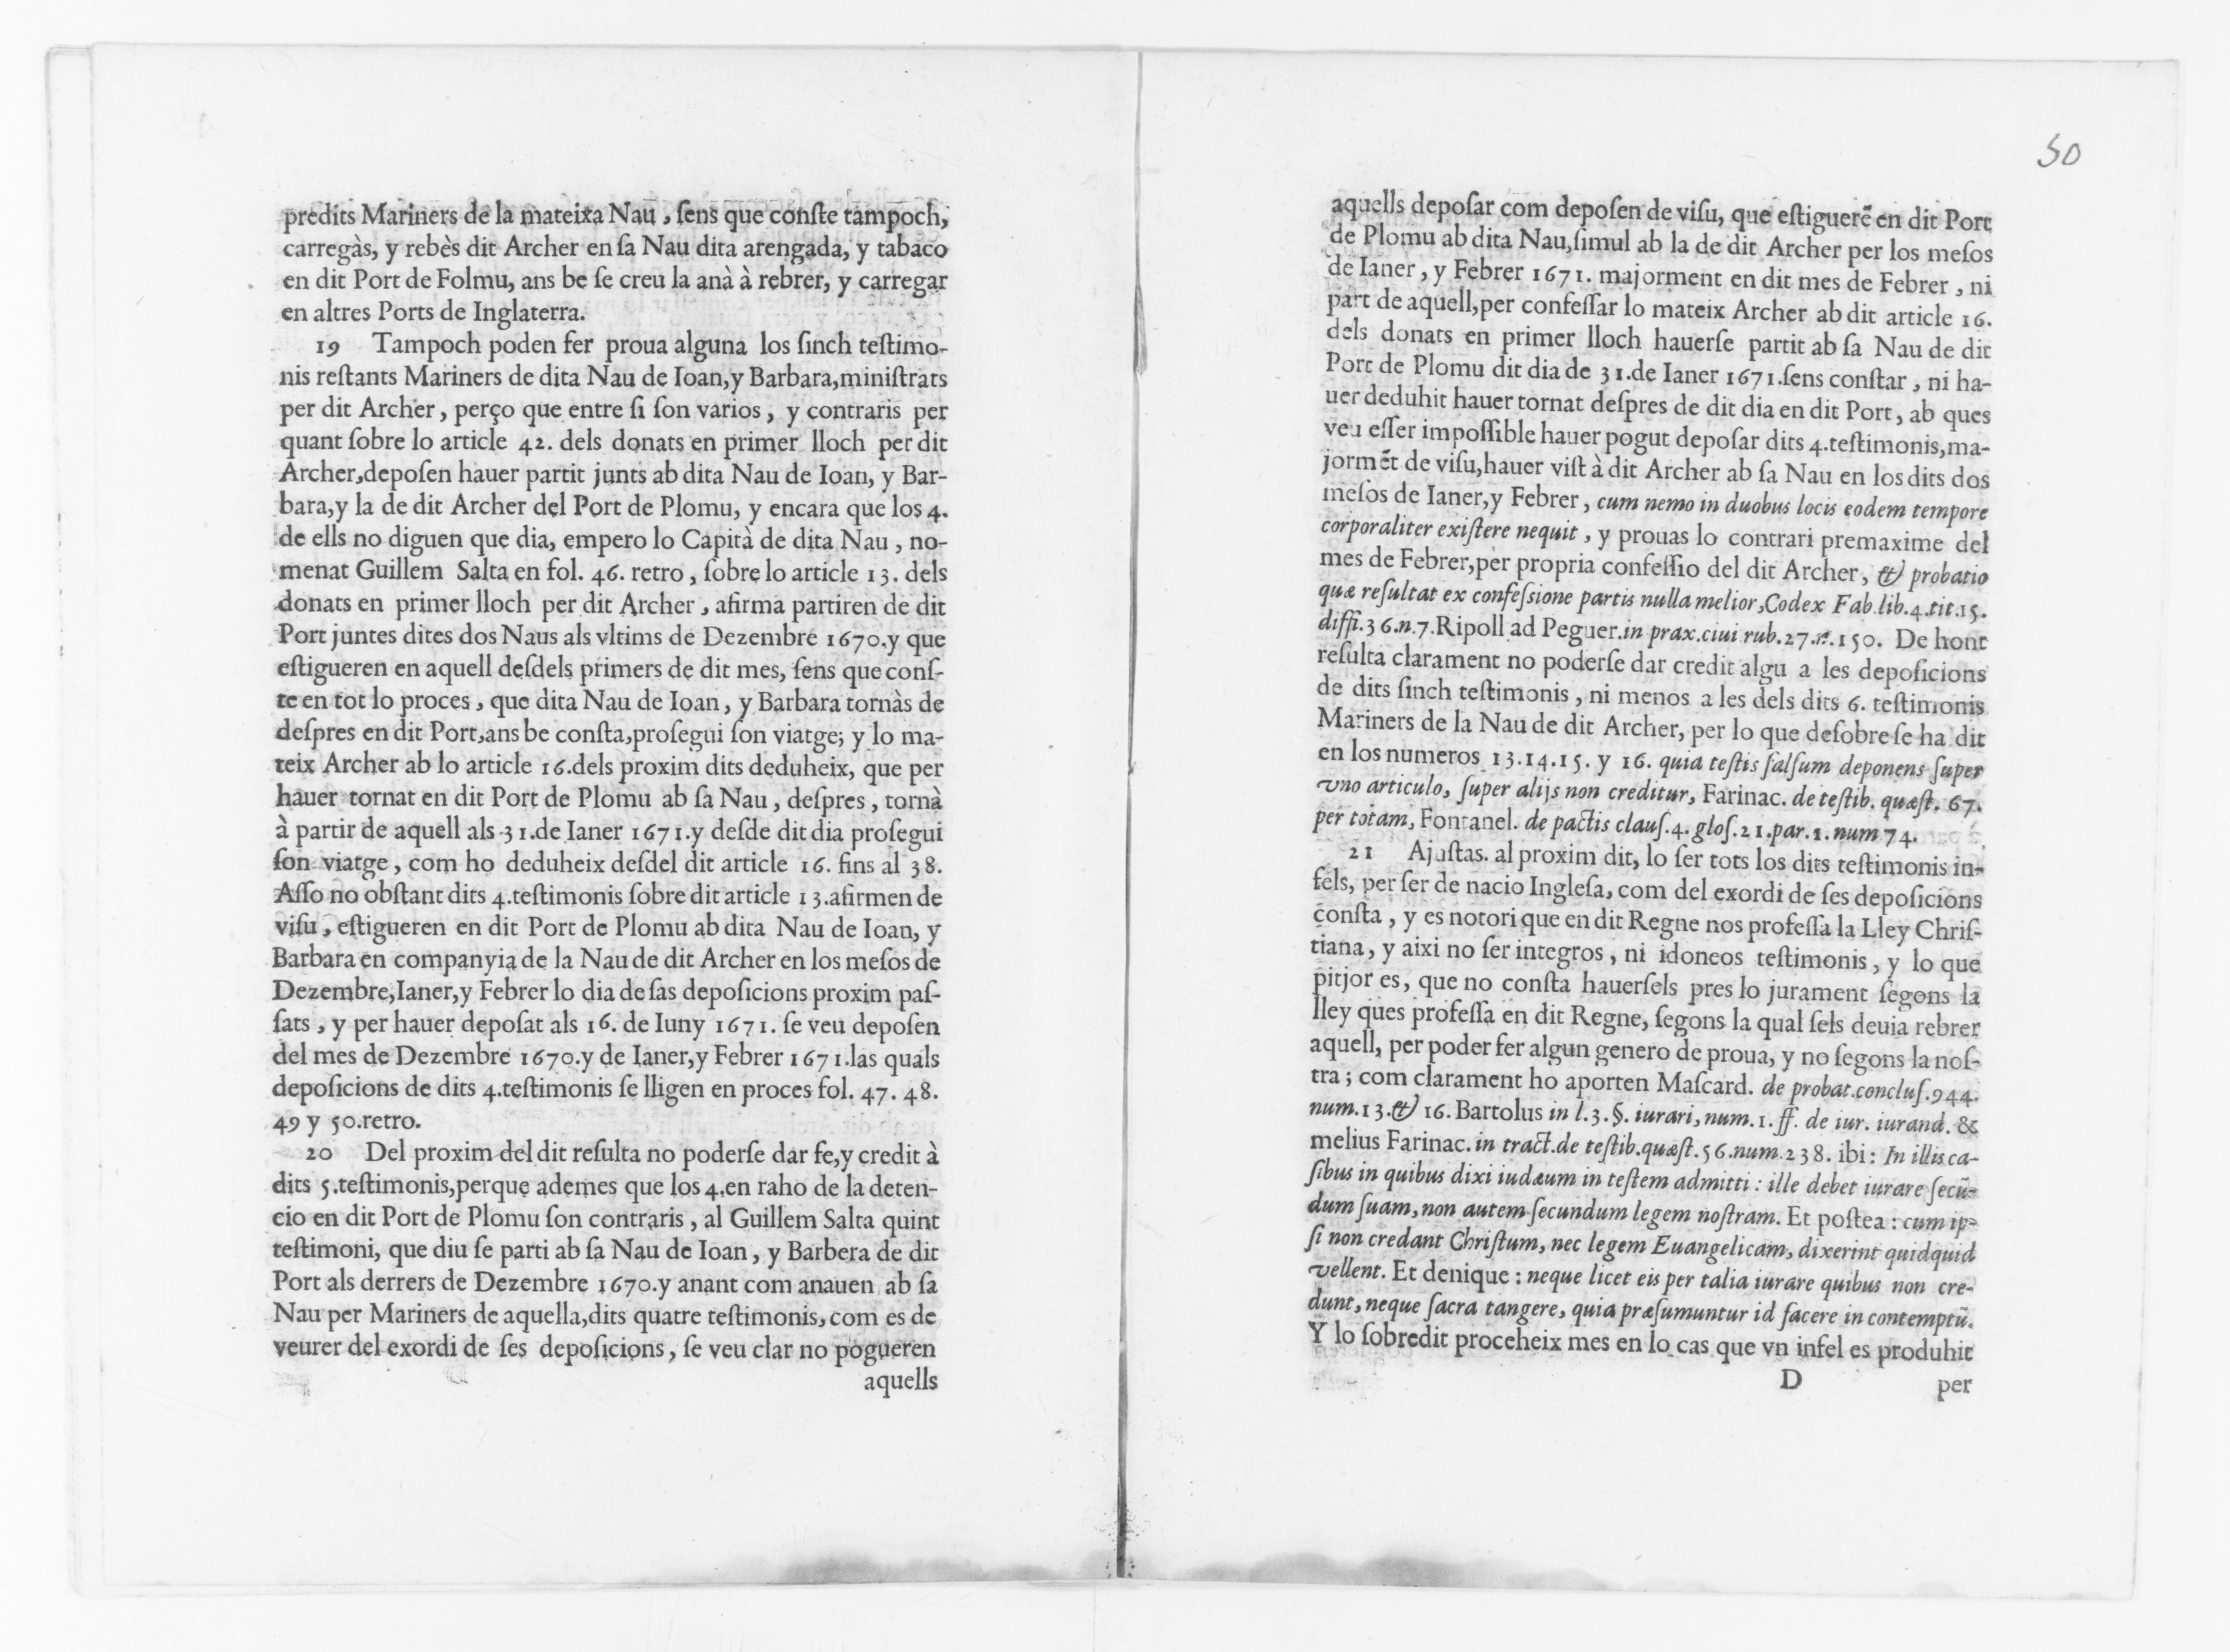 predits Mariners de la mateixa Nau, ſens que conſte tampoch,
carregàs, y rebès dit Archer en ſa Nau dita arengada, y tabaco
en dit Port de Folmu, ans be ſe creu la anà à rebrer, y carregar
en altres Ports de Inglaterra.
19 Tampoch poden fer proua alguna los ſinch teſtimo-
nis reſtants Mariners de dita Nau de Ioan, y Barbara, miniſtrats
per dit Archer, perço que entre ſi ſon varios, y contraris per
quant ſobre lo article 42. dels donats en primer lloch per dit
Archer, depoſen hauer partit junts ab dita Nau de Ioan, y Bar-
bara, y la de dit Archer del Port de Plomu, y encara que los 4.
de ells no diguen que dia, empero lo Capità de dita Nau, no-
menat Guillem Salta en fol. 46. retro, ſobre lo article 13. dels
donats en primer lloch per dit Archer, afirma partiren de dit
Port juntes dites dos Naus als vltims de Dezembre 1670. y que
eſtigueren en aquell deſdels primers de dit mes, ſens que conſ-
te en tot lo proces, que dita Nau de Ioan, y Barbara tornàs de
deſpres en dit Port, ans be conſta, proſegui ſon viatge; y lo ma-
teix Archer ab lo article 16. dels proxim dits deduheix, que per
hauer tornat en dit Port de Plomu ab ſa Nau, deſpres, tornà
à partir de aquell als 31. de Ianer 1671. y deſde dit dia proſegui
ſon viatge, com ho deduheix deſdel dit article 16. fins al 38.
Aſſo no obſtant dits 4. teſtimonis ſobre dit article 13. afirmen de
viſu, eſtigueren en dit Port de Plomu ab dita Nau de Ioan, y
Barbara en companyia de la Nau de dit Archer en los meſos de
Dezembre, Ianer, y Febrer lo dia de ſas depoſicions proxim paſ-
ſats, y per hauer depoſat als 16. de Iuny 1671. ſe veu depoſen
del mes de Dezembre 1670. y de Ianer, y Febrer 1671. las quals
depoſicions de dits 4. teſtimonis ſe lligen en proces fol. 47. 48.
49 y 50. retro.
20 Del proxim del dit reſulta no poderſe dar fe, y credit à
dits 5. teſtimonis, perque ademes que los 4. en raho de la deten-
cio en dit Port de Plomu ſon contraris, al Guillem Salta quint
teſtimoni, que diu ſe parti ab ſa Nau de Ioan, y Barbera de dit
Port als derrers de Dezembre 1670. y anant com anauen ab ſa
Nau per Mariners de aquella, dits quatre teſtimonis, com es de
veurer del exordi de ſes depoſicions, ſe veu clar no pogueren
aquells
50
aquells depoſar com depoſen de viſu, que eſtiguerẽ en dit Port
de Plomu ab dita Nau, ſimul ab la de dit Archer per los meſos
de Ianer, y Febrer 1671. majorment en dit mes de Febrer, ni
part de aquell, per confeſſar lo mateix Archer ab dit article 16.
dels donats en primer lloch hauerſe partit ab ſa Nau de dit
Port de Plomu dit dia de 31. de Ianer 1671. ſens conſtar, ni ha-
uer deduhit hauer tornat deſpres de dit dia en dit Port, ab ques
veu eſſer impoſſible hauer pogut depoſar dits 4. teſtimonis, ma-
jormẽt de viſu, hauer viſt à dit Archer ab ſa Nau en los dits dos
meſos de Ianer, y Febrer, cum nemo in duobus locis eodem tempore
corporaliter exiſtere nequit, y prouas lo contrari premaxime del
mes de Febrer, per propria confeſſio del dit Archer, & probatio
quæ reſultat ex confeſsione partis nulla melior, Codex Fab. lib. 4. tit. 15.
diffi. 36. n. 7. Ripoll ad Peguer. in prax. ciui rub. 27. nº. 150. De hont
reſulta clarament no poderſe dar credit algu a les depoſicions
de dits ſinch teſtimonis, ni menos a les dels dits 6. teſtimonis
Mariners de la Nau de dit Archer, per lo que deſobre ſe ha dit
en los numeros 13. 14. 15. y 16. quia teſtis falſum deponens ſuper
vno articulo, ſuper alijs non creditur, Farinac. de teſtib. quæſt. 67.
per totam, Fontanel. de pactis clauſ. 4. gloſ. 21. par. 1. num 74.
21 Ajuſtas. al proxim dit, lo ſer tots los dits teſtimonis in-
fels, per ſer de nacio Ingleſa, com del exordi de ſes depoſicions
conſta, y es notori que en dit Regne nos profeſſa la Lley Chriſ-
tiana, y aixi no ſer integros, ni idoneos teſtimonis, y lo que
pitjor es, que no conſta hauerſels pres lo jurament ſegons la
lley ques profeſſa en dit Regne, ſegons la qual ſels deuia rebrer
aquell, per poder fer algun genero de proua, y no ſegons la noſ-
tra; com clarament ho aporten Maſcard. de probat. concluſ. 944.
num. 13. & 16. Bartolus in l. 3. §. iurari, num. 1. ff. de iur. iurand. &
melius Farinac. in tract. de teſtib. quæſt. 56. num. 238. ibi: In illis ca-
ſibus in quibus dixi iudæum in teſtem admitti: ille debet iurare ſecũ-
dum ſuam, non autem ſecundum legem noſtram. Et poſtea: cum ip-
ſi non credant Chriſtum, nec legem Euangelicam, dixerint quidquid
vellent. Et denique: neque licet eis per talia iurare quibus non cre-
dunt, neque ſacra tangere, quia præſumuntur id facere in contemptũ.
Y lo ſobredit proceheix mes en lo cas que vn infel es produhit
D per